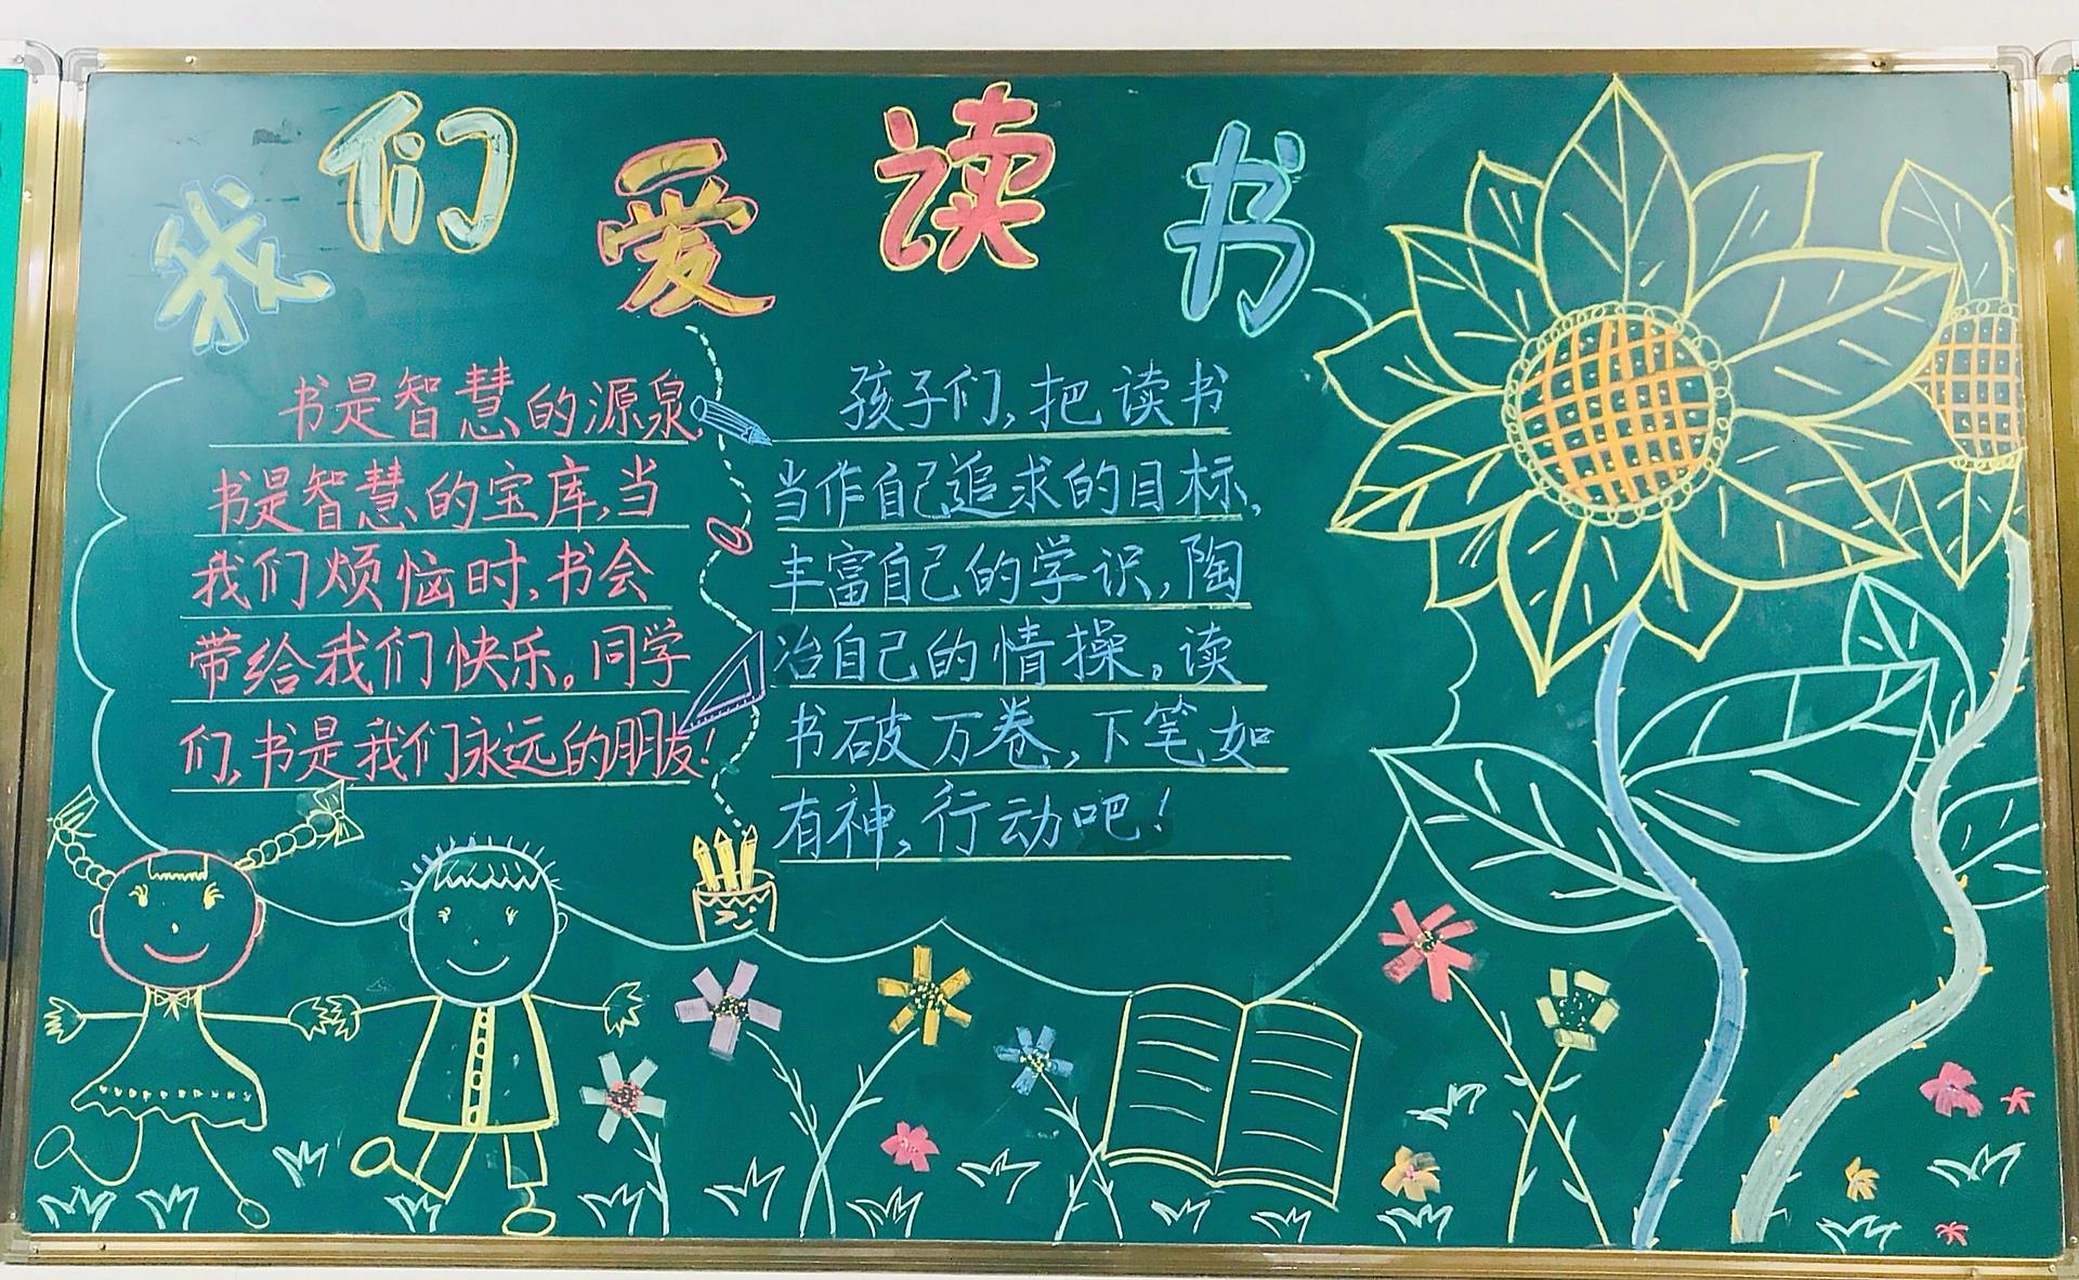 我们爱读书
书是智慧的源泉,
书是智慧的宝库,当
我们烦恼时,书会
带给我们快乐。同学
们,书是我们永远的朋友!
孩子们,把读书
当作自己追求的目标,
丰富自己的学识,陶
冶自己的情操。读
书破万卷,下笔如
有神,行动吧!